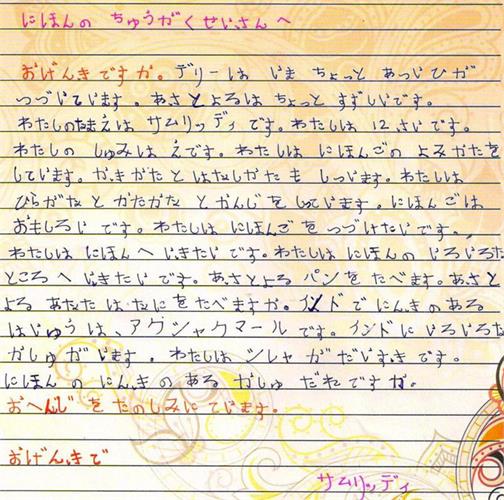 にほんの ちゅうがくせいさん へ
おげんきですか。デリーは いま ちょっと あついひが
つづいています。あさとよるは ちょっと すずしいです。
わたしのなまえは サムリッディです。わたしは 12さいです。
わたしの しゅみは えです。わたしは にほんごの よみかたを
しています。かきかたと はなしかたも しっています。わたしは
ひらがなと かたかなと かんじを しっています。にほんごは
おもしろいです。わたしは にほんごを つづけたいです。
わたしは にほんへ いきたいです。わたしは にほんの いろいろな
ところへ いきたいです。あさとよる パンを たべます。あさと
よる あなたは なにをたべますか。インドで にんきのある
はいゆうは、アクシャクマールです。インドに いろいろな
かしゅがいます。わたしは シレャがだいすきです。
にほんの にんきのある かしゅ だれですか。
おへんじを たのしみにています。
おげんきで
サムリッディ